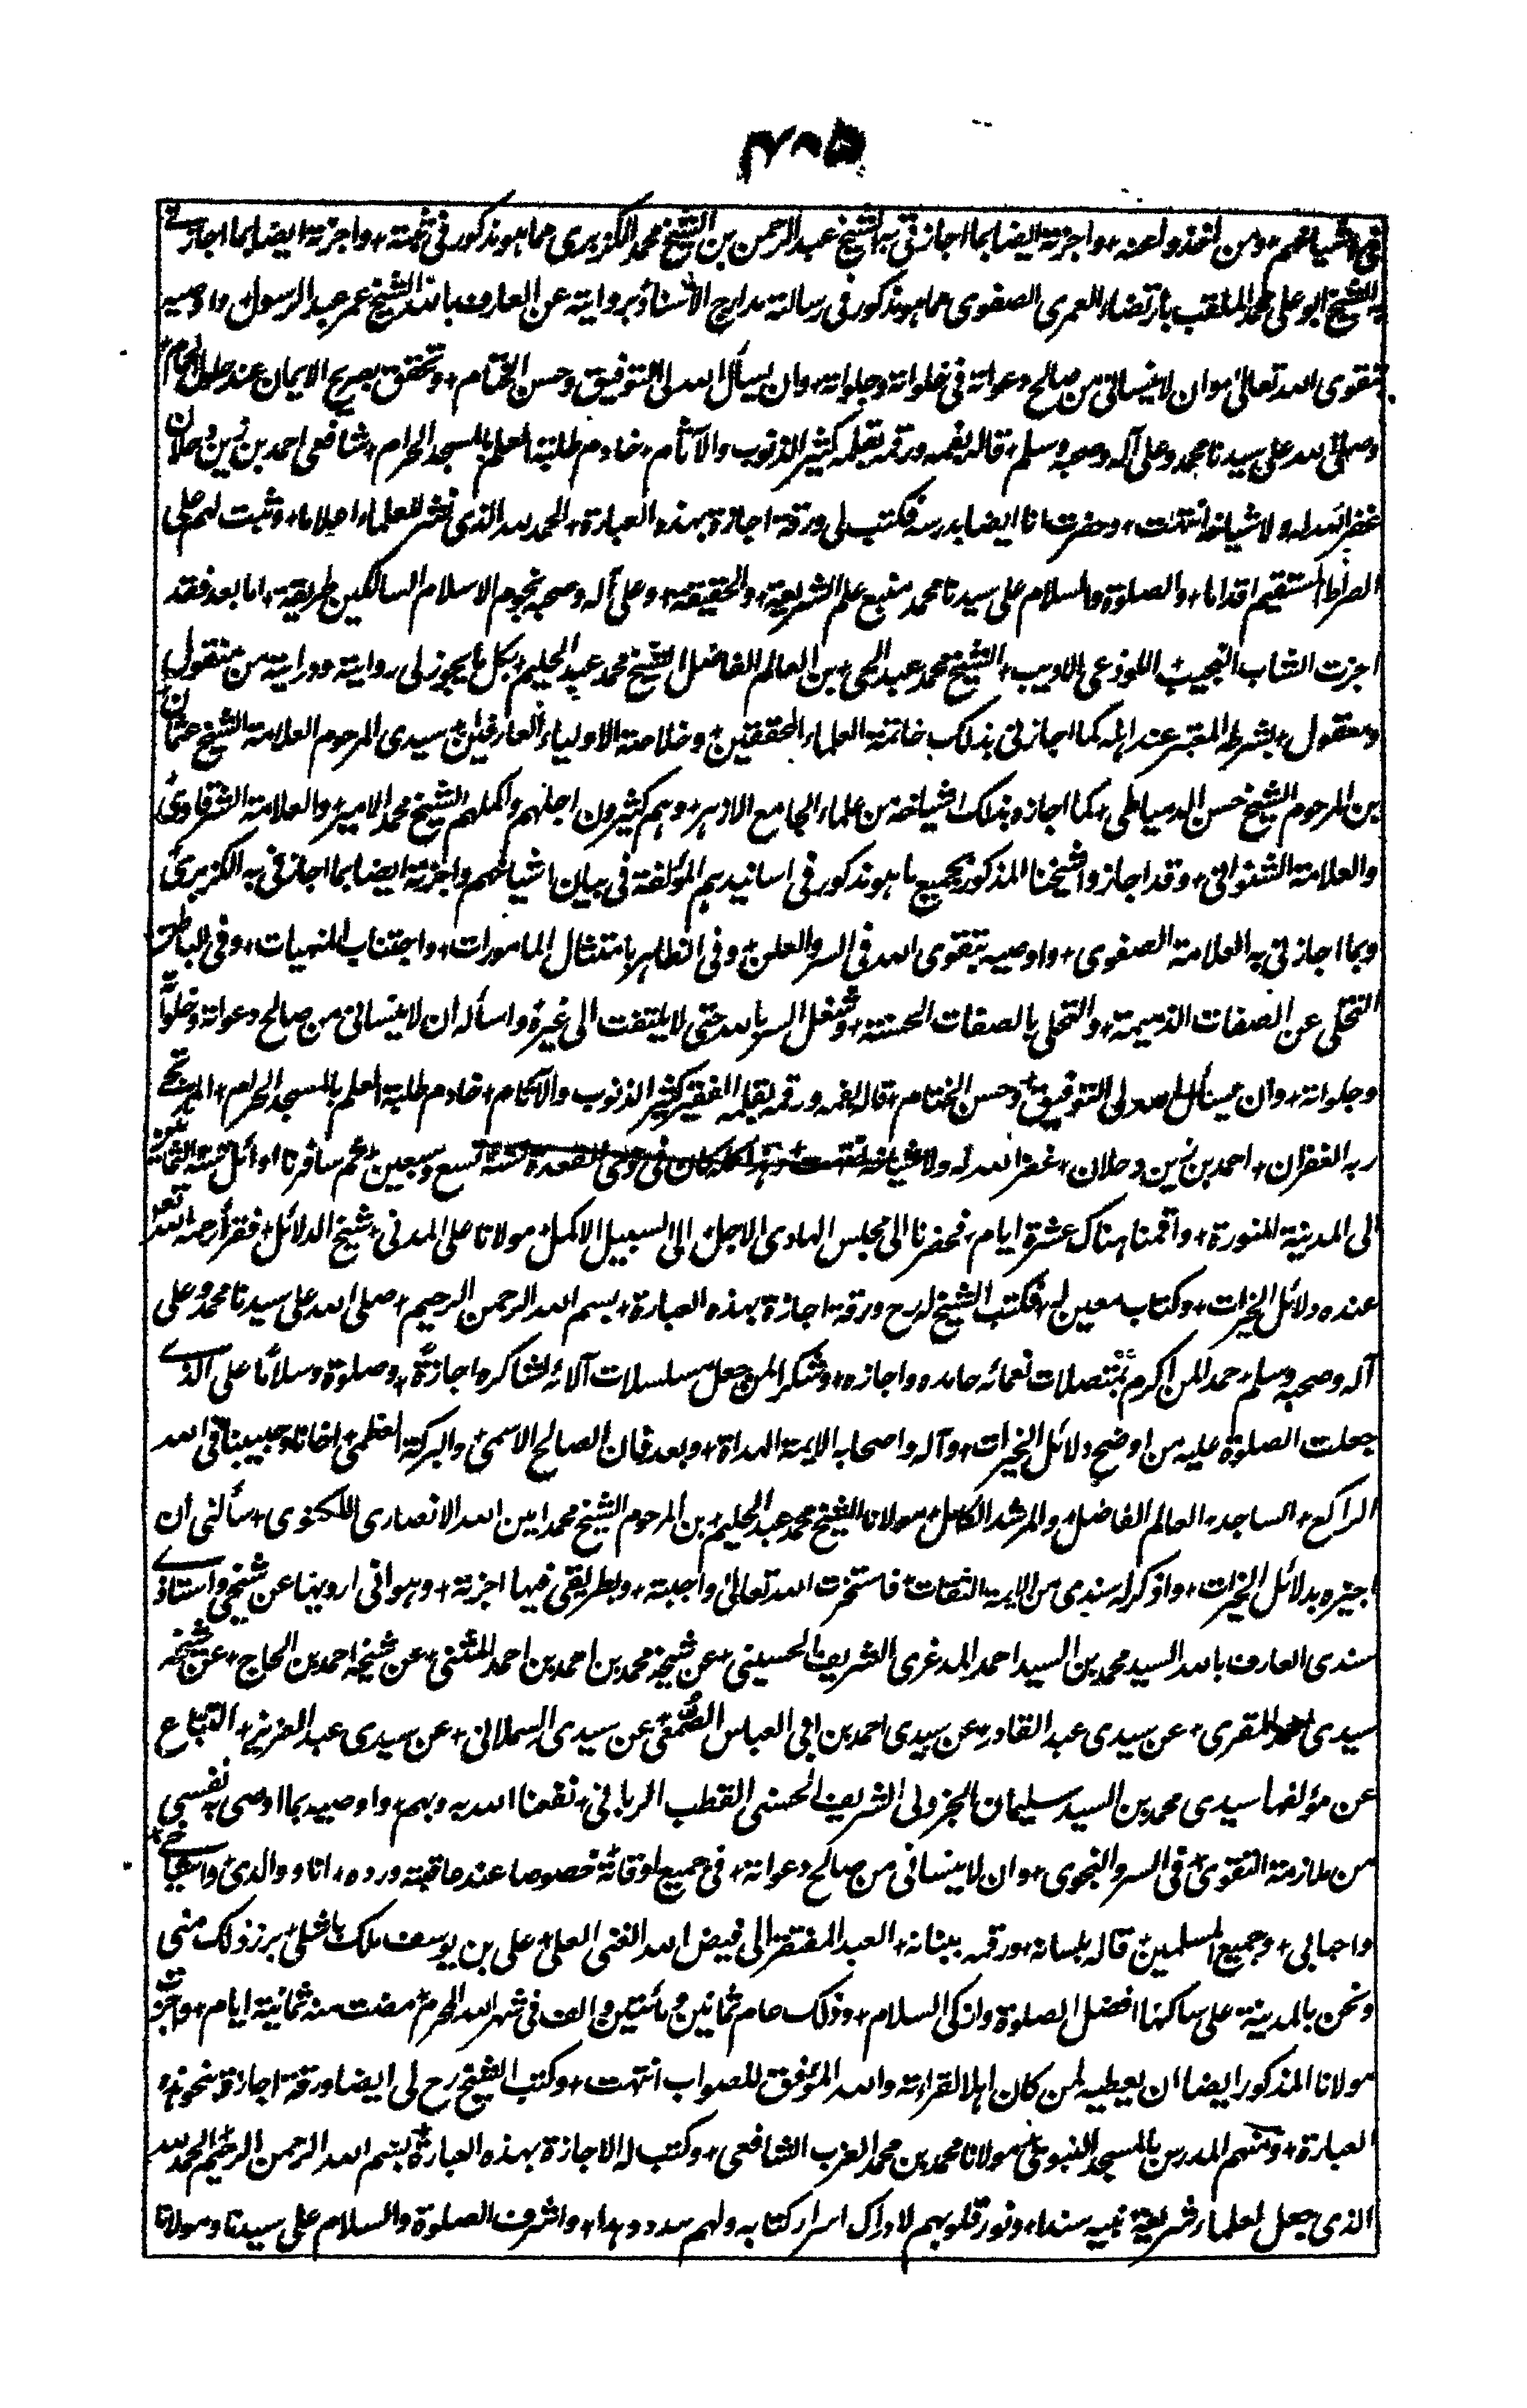 ٢٨٥
فى اشياخهم + ومن اخذوا عنه + واجزته ايضا بما اجازنى به الشيخ عبد الرحمن بن الشيخ محمد الكزبرى مما هو مذكور فى ثبته + واجزته ايضا بما اجازنى
به الشيخ ابو على محمد الملقب بارتضاء العمرى الصفوى مما هو مذكور فى رسالته مدارج الاسناد بروايته عن العارف بالله الشيخ عمر عبد الرسول + واوصيه
بتقوى الله تعالى + وان لا ينسانى من صالح دعواته فى خلواته وجلواته + وان يسأل الله لى التوفيق وحسن الختام + وتحقق بصريح الايمان عند حلول الحمام +
وصلى الله على سيدنا محمد وعلى آله وصحبه وسلم + قاله بفمه ورقمه بقلمه كثير الذنوب والآثام + خادم طلبة العلم بالمسجد الحرام + شافعى احمد بن زين دحلان
غفر الله له ولاشياخه انتهت + وحضرت انا ايضا بدرسه فكتب لى ورقة اجازة بهذه العبارة + الحمد لله الذى نشر للعلماء اعلاما + وثبت لهم على
الصراط المستقيم اقداما + والصلوة والسلام على سيدنا محمد منبع علم الشريعة + والحقيقة + وعلى آله وصحبه نجوم الاسلام السالكين طريقه + اما بعد فقد
اجزت الشاب النجيب + اللوذعى الاديب + الشيخ محمد عبد الحى + بن العالم الفاضل الشيخ محمد عبد الحليم + بكل ما يجوز لى روايته ودرايته من منقول
ومعقول + بشرطه المعتبر عند اهله كما اجازنى بذلك خاتمة العلماء المحققين + وخلاصة الاولياء العارفين + سيدى المرحوم العلامة الشيخ عثمان
بن المرحوم الشيخ حسن الدمياطى + كما اجازه بذلك اشياخه من علماء الجامع الازهر + وهم كثيرون اجلهم واكملهم الشيخ محمد الامير + والعلامة الشرقاوى +
والعلامة الشنوانى + وقد اجازوا شيخنا المذكور بجميع ما هو مذكور فى اسانيدهم المؤلفة فى بيان اشياخهم واجزته ايضا بما اجازنى به الكزبرى
وبما اجازنى به العلامة الصفوى + واوصيه بتقوى الله فى السر والعلن + وفى الظاهر بامتثال المامورات + واجتناب المنهيات + وفى الباطن
التخلى عن الصفات الذميمة + والتحلى بالصفات الحسنة + وشغل السر بالله حتى لا يلتفت الى غيره واسأله ان لا ينسانى من صالح دعواته وخلواته
وجلواته + وان يسأل الله لى التوفيق + وحسن الختام + قاله بفمه ورقمه بقلمه الفقير كثير الذنوب والآثام + خادم طلبة العلم بالمسجد الحرام + المرتجى
ربه الغفران + احمد بن زين دحلان + غفر الله له ولاشياخه انتهت + وهذا كله كان فى ذى القعدة سنة تسع وسبعين + ثم سافرنا اوائل سنة الثمانين
الى المدينة المنورة + واقمنا هناك عشرة ايام + فحضرنا الى مجلس الهادى الاجل + الى السبيل الاكمل + مولانا على المدنى + شيخ الدلائل + فقرأ رحمه الله
عنده دلائل الخيرات + وكتاب معين له + فكتب الشيخ له رح ورقة اجازة بهذه العبارة + بسم الله الرحمن الرحيم + صلى الله على سيدنا محمد وعلى
آله وصحبه وسلم + حمدا لمن اكرم بمتصلات نعمائه حامده واجازه + وشكرا لمن جعل مسلسلات آلائه لشاكره اجازة + وصلوة وسلاما على الذى
جعلت الصلوة عليه من اوضح دلائل الخيرات + وآله واصحابه الايمة الهداة + وبعد فان الصالح الاسمى + والبركة العظمى + اخانا وحبيبنا فى الله
الراكع + الساجد + العالم الفاضل + والمرشد الكامل + مولانا الشيخ محمد عبد الحليم + بن المرحوم الشيخ محمد امين الله الانصارى اللكنوى + سألنى ان
اجيزه بدلائل الخيرات + واذكر له سندى من الايمة الثقات + فاستخرت الله تعالى واجبته + وبطريقى فيها اجزته + وهو انى ارويها عن شيخى واستاذى
سندى العارف بالله السيد محمد بن السيد احمد المدغرى الشريف الحسينى + عن شيخه محمد بن احمد بن احمد المثنى + عن شيخه احمد بن الحاج + عن شيخه
سيدى احمد المقرى + عن سيدى عبد القادر + عن سيدى احمد بن ابى العباس الصمعى + عن سيدى السملالى + عن سيدى عبد العزيز + التباع
عن مؤلفها سيدى محمد بن السيد سليمان الجزولى الشريف الحسنى القطب الربانى + نفعنا الله به وبهم + واوصيه بما اوصى به نفسى
من ملازمة التقوى + فى السر والنجوى + وان لا ينسانى من صالح دعواته + فى جميع اوقاته + خصوصا عند عاقبة ورده + انا ووالدى واشياخى +
واحبابى + وجميع المسلمين + قاله بلسانه + ورقمه ببنانه + العبد المفتقر الى فيض الله الغنى العلى + على بن يوسف ملك باشلى + برز ذلك منى
ونحن بالمدينة على ساكنها افضل الصلوة وازكى السلام + وذلك عام ثمانين ومأتين والف فى شهر الله المحرم + مضت منه ثمانية ايام + واجزت
مولانا المذكور ايضا ان يعطيه لمن كان اهلا لقراءته والله الموفق للصواب انتهت + وكتب الشيخ رح لى ايضا ورقة اجازة نحو هذه
العبارة + ومنهم المدرس بالمسجد النبوى + مولانا محمد بن محمد العزب الشافعى + وكتب له الاجازة بهذه العبارة + بسم الله الرحمن الرحيم + الحمد لله
الذى جعل لعلماء شريعة نبيه سندا + ونور قلوبهم لادراك اسرار كتابه ولهم سدد وهدا + واشرف الصلوة والسلام على سيدنا ومولانا